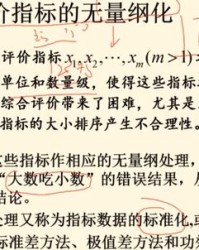 价指标的无量纲化
评价指标 x₁,x₂,⋯,x_m(m>1)
单位和数量级，使得这些指标
综合评价带来了困难，尤其是
指标的大小排序产生不合理性。
这些指标作相应的无量纲处理，
“大数吃小数”的错误结果，从
结论。
处理又称为指标数据的标准化或
标准差方法、极值差方法和功